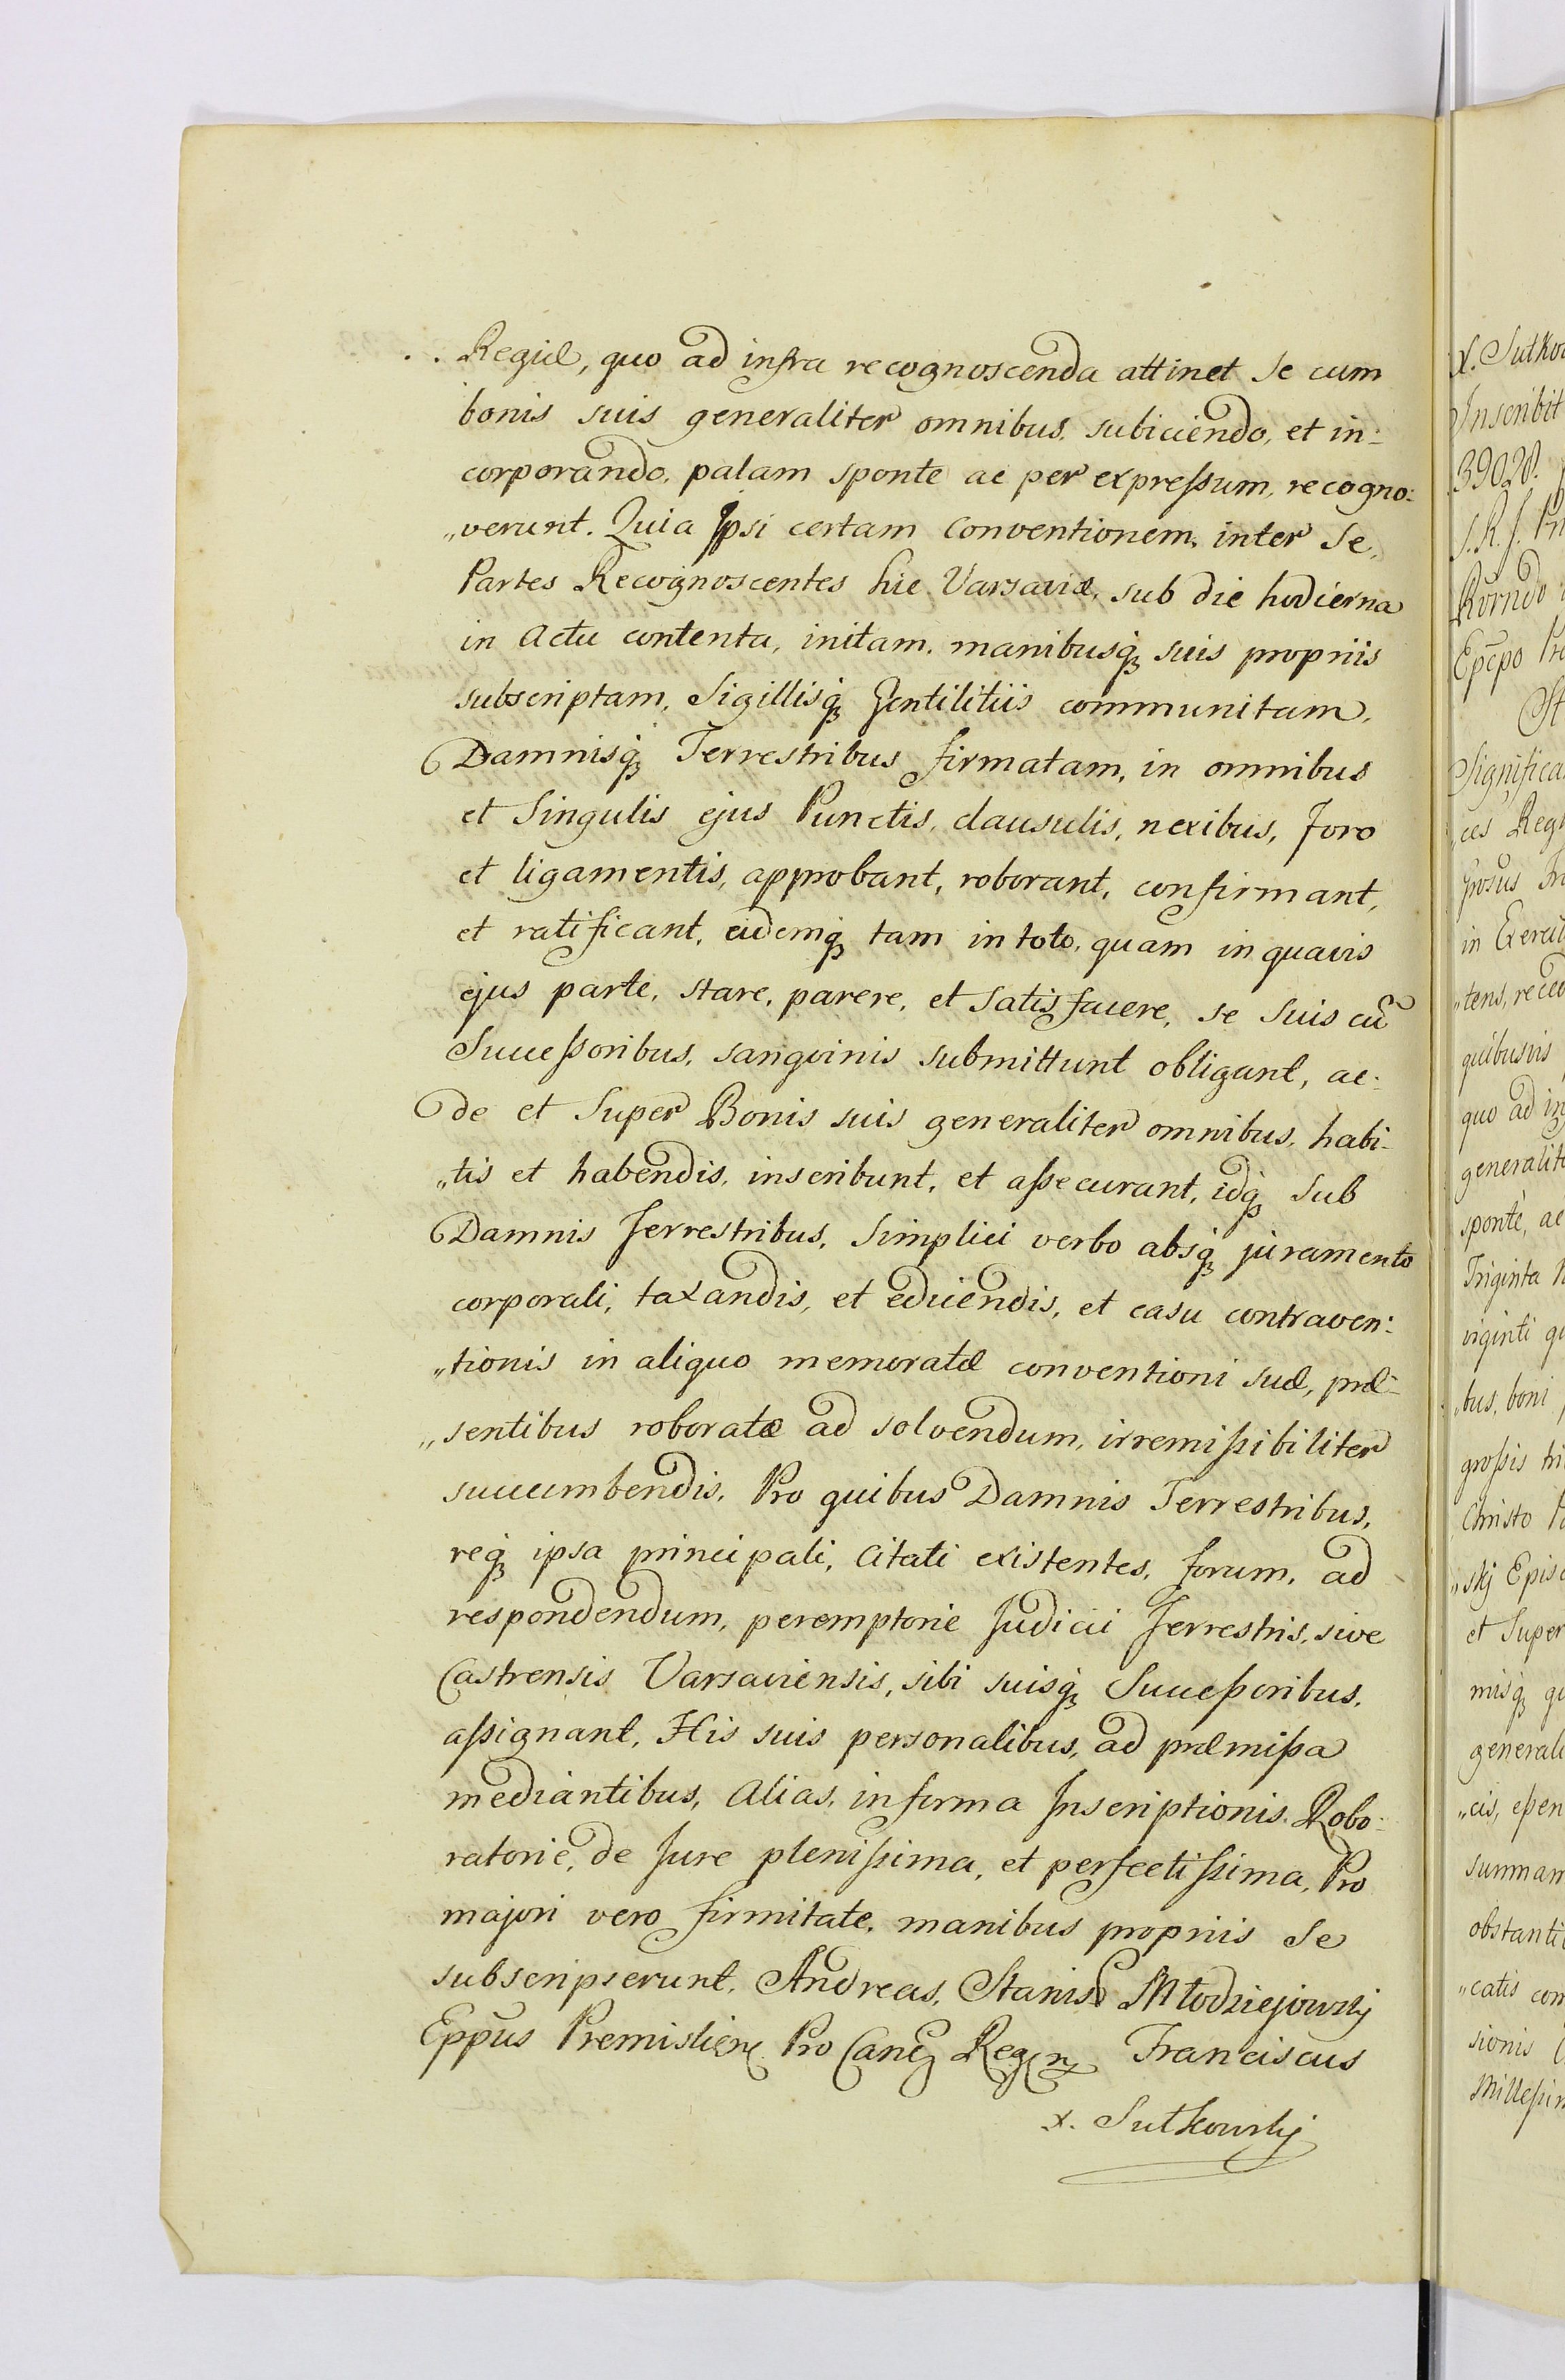 Regiæ, quo ad infra recognoscenda attinet se cum
bonis suis generaliter omnibus subiiciendo, et in-
corporando, palam sponte ac per expreſsum, recogno-
„verunt. Quia Ipsi certam Conventionem, inter Se,
Partes Recognoscentes hic Varsaviæ, sub die hodierna
in Actu contenta, initam, manibusq́ suis propriis
subscriptam, Sigillisq́ Gentilitiis communitam,
Damnisq́ Terrestribus firmatam, in omnibus
et Singulis ejus Punctis, clausulis, nexibus, foro
et ligamentis, approbant, roborant, confirmant,
et ratificant, eidemq́ tam in toto, quam in quavis
ejus parte, stare, parere, et Satisfacere, se suis cũ
Succeſsoribus, sanguinis submittunt obligant, ac
de et Super Bonis suis generaliter omnibus, habi-
„tis et habendis, inscribunt, et aſsecurant, idq́ Sub
Damnis Terrestribus, Simplici verbo absq́ juramento
corporali, taxandis, et educendis, et casu contraven-
„tionis in aliquo memoratæ conventioni suæ, præ-
„sentibus roboratæ ad solvendum, irremiſsibiliter
succumbendis, Pro quibus Damnis Terrestribus,
req́ ipsa principali, Citati existentes, forum, ad
respondendum, peremptorie Judicii Terrestris, sive
Castrensis Varsaviensis, sibi suisq́ Succeſsoribus,
aſsignant, His suis personalibus, ad præmiſsa
mediantibus, Alias, in forma Inscriptionis Robo-
ratoriæ, de Jure pleniſsima, et perfectiſsima, Pro
majori vero firmitate, manibus propriis Se
subscripserunt, Andreas, Stanis Młodziejowskj
Eppus Premislien Pro Canc Regn Franciscus
x. Sułkowskj
x. Sułkow
Inscribit
39028.
S. R. J. Pri
Epcpo
Significa
ces Reg
in Exercit
„tens, recco
quibusvis
quo ad in
generalite
sponte, ac
Triginta
viginti qu
„tus, boni
groſsis tri
Christo
„skj Epis
et Super
misq́ qu
generali
„cis, eſsen
summam
obstanti
„catis con
sionis
Milleſsim